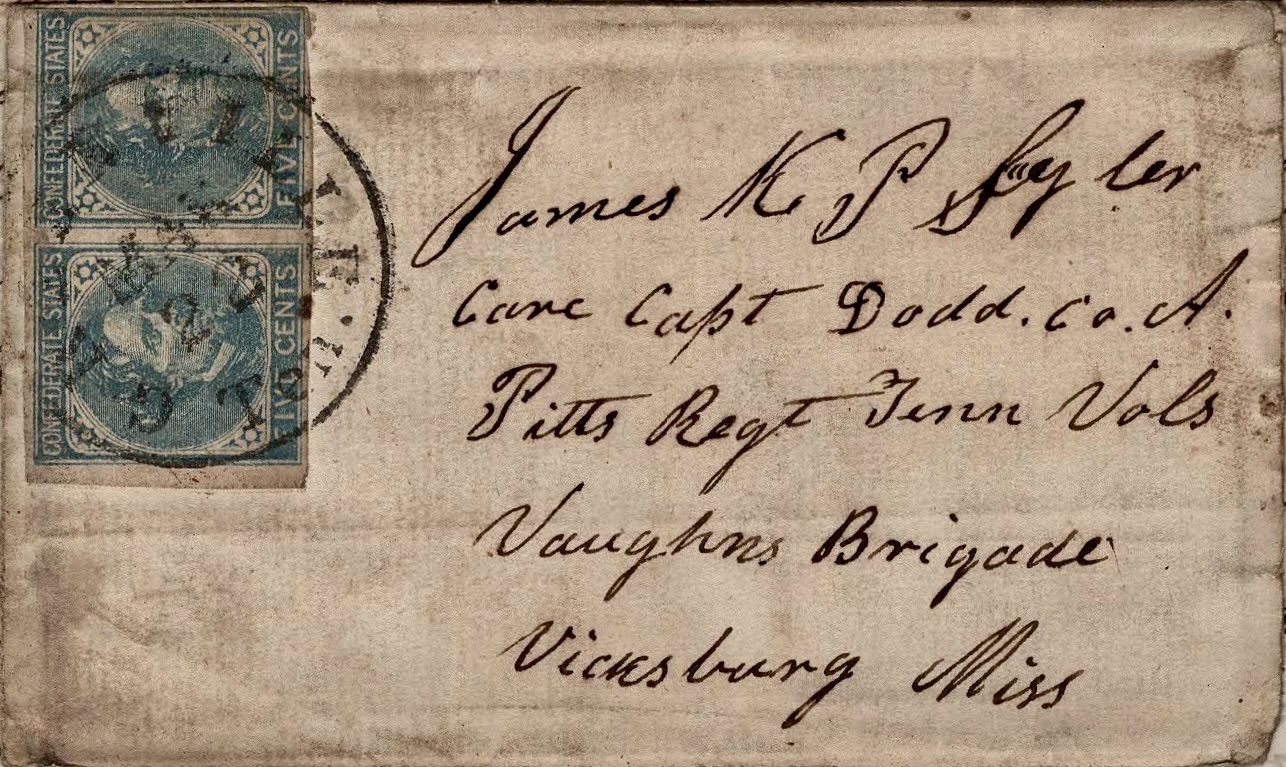 CONFEDERATE STATES
FIVE CENTS
CONFEDERATE STATES
FIVE CENTS
MAR
22
James K P Sayler
Care Capt Dodd. Co. A.
Pitts Regt Tenn Vols
Vaughns Brigade
Vicksburg Miss